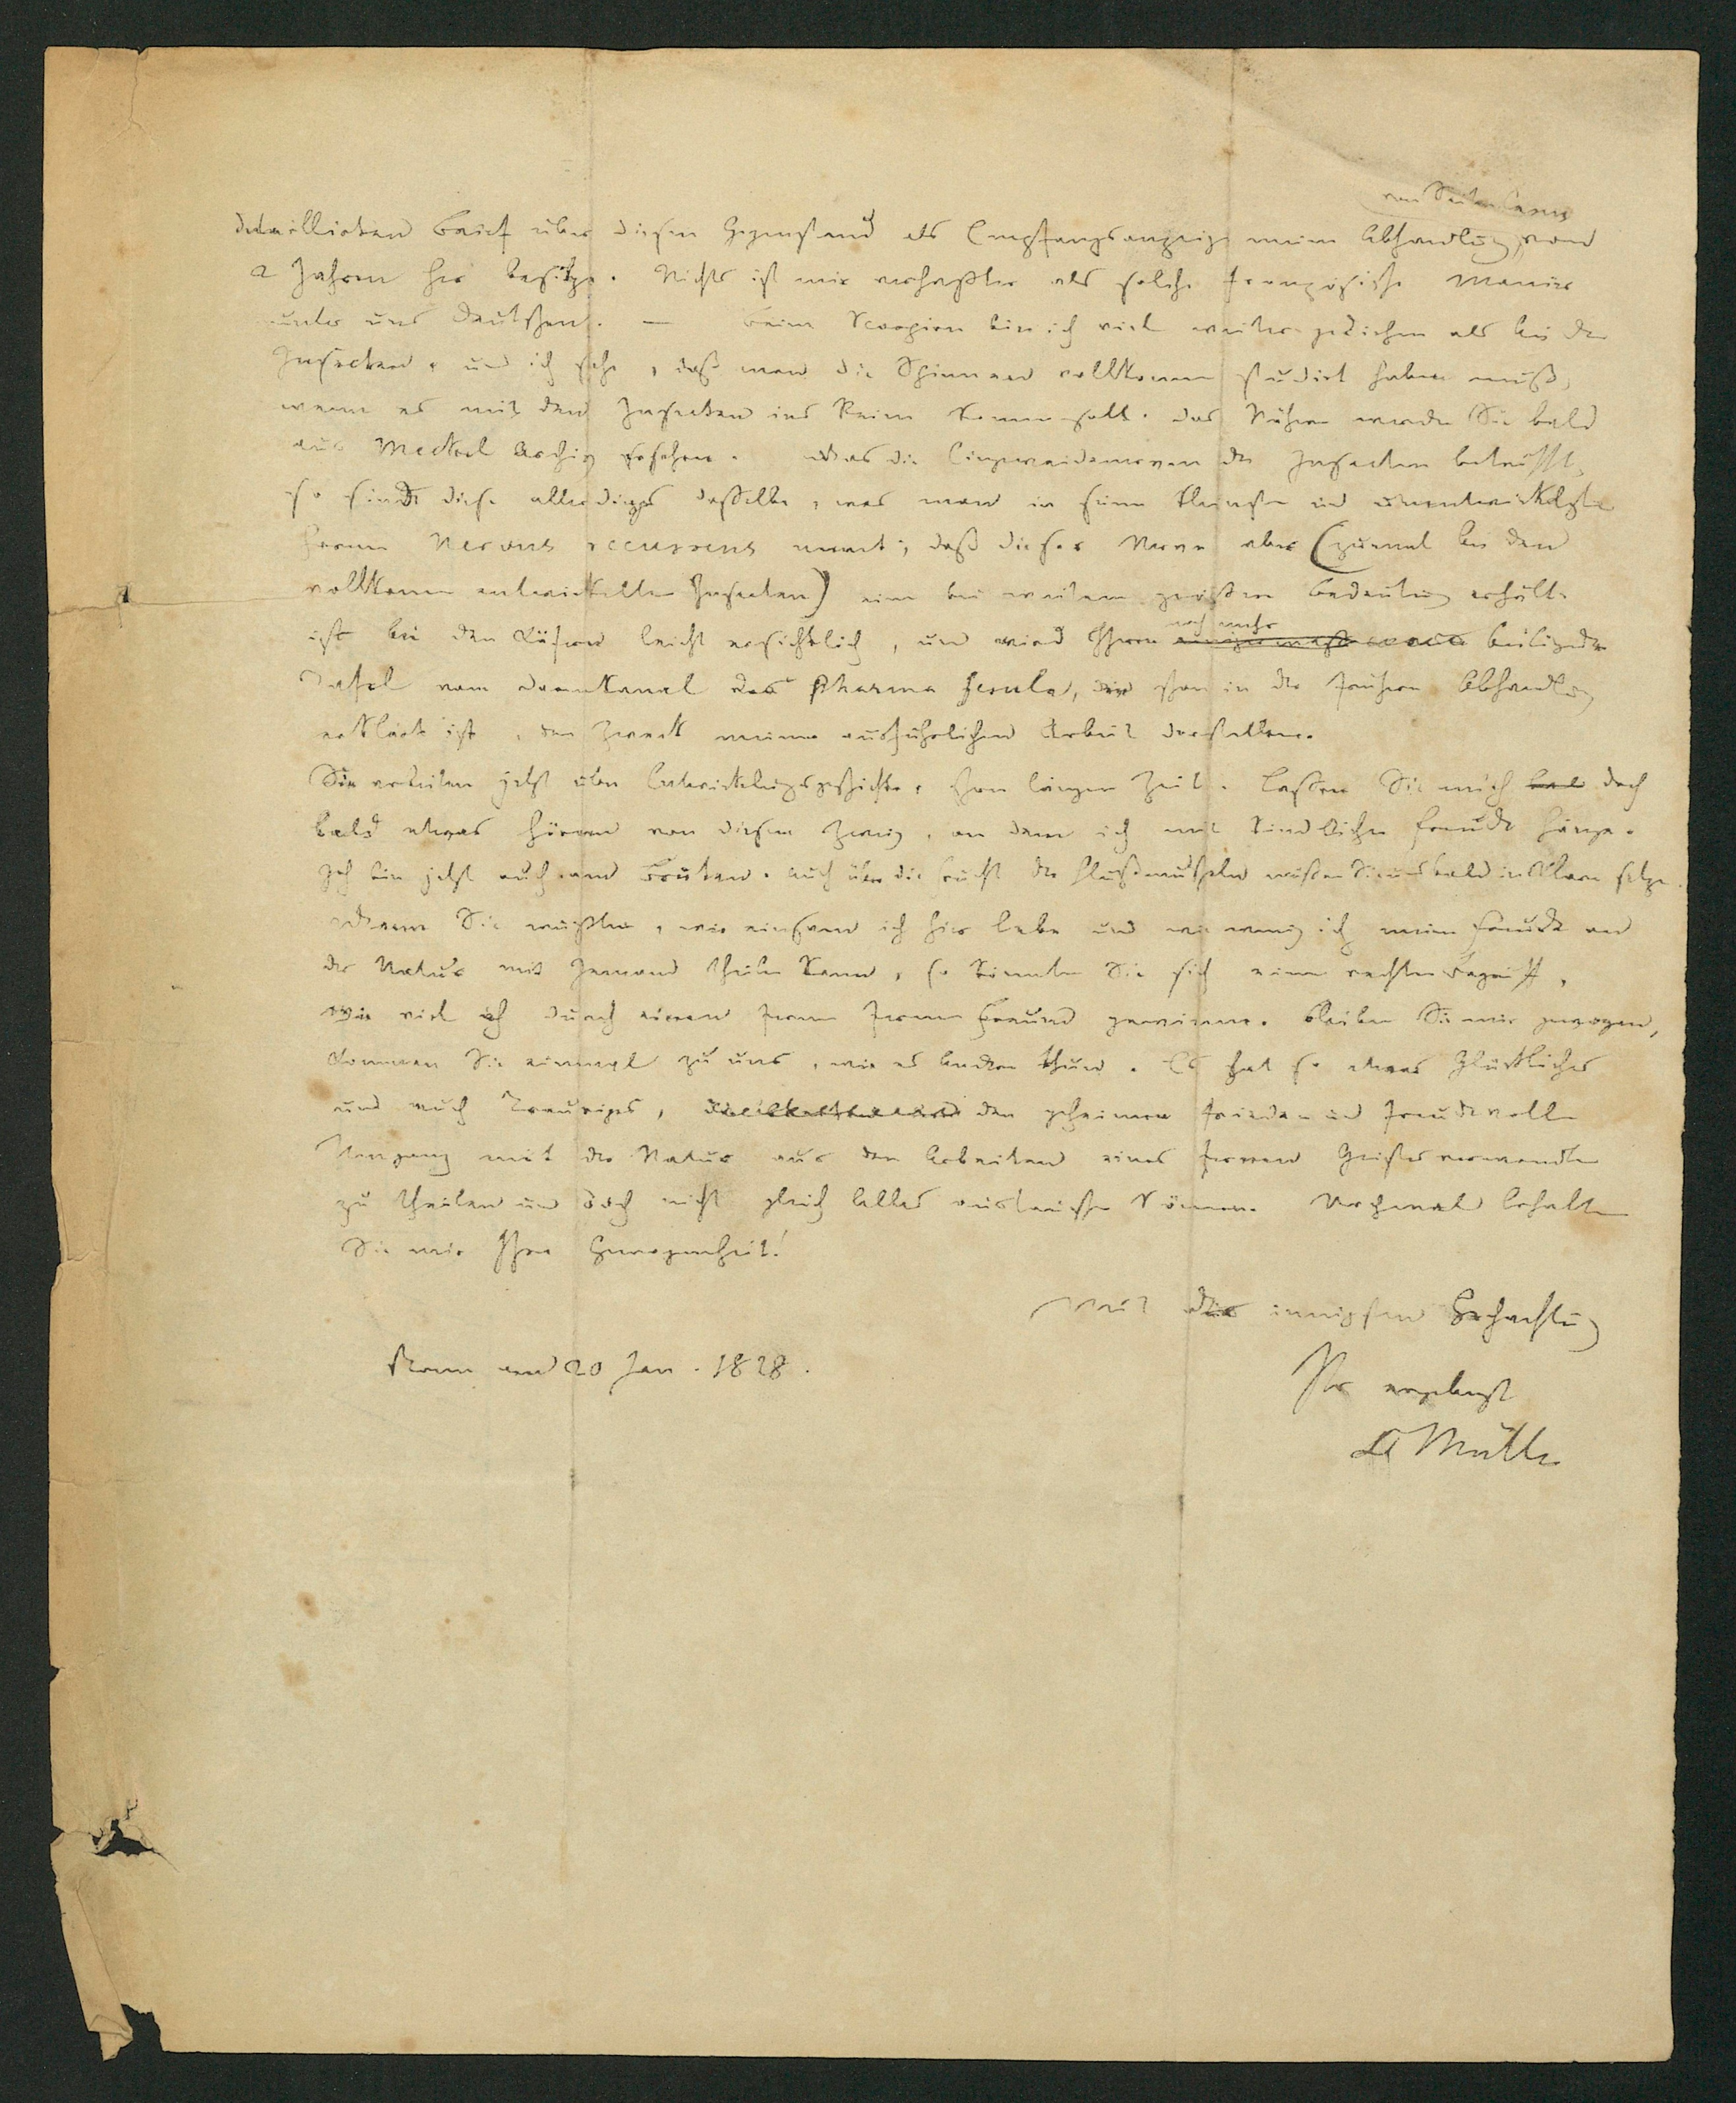 von Seiten Carus
detaillirten Brief über diesen Gegenstand als Empfangsanzeige meiner Abhandlung, von
2 Jahren her besitze. Nichts ist mir verhaßter als solche französische Manier
unter uns Deutschen. — Beim Scorpion bin ich viel weiter gediehen als bei den
Insecten, und ich sehe, daß man die Spinnen vollkommen studirt haben muß,
wenn es mit den Insecten ins Reine kommen soll. Das Nähere werden Sie bald
aus Meckel Archiv ersehen. Was die Eingeweidenerven der Insecten betrifft,
so sind diese allerdings dasselbe, was man in seiner kleinsten und unentwickelsten
Form Nervus recurrens nennt; daß dieser Nerve aber (zumal bei den
vollkommen entwickelten Insecten) eine bei weitem größere Bedeutung erhält,
noch mehr
ist bei den Käfern leicht ersichtlich, und wird Ihnen beiliegende
Tafel vom Darmkanal des Phasma ferula, die schon in der frühern Abhandlung
erklärt ist, den Zweck meiner ausführlichen Arbeit darstellen.
Sie arbeiten jetzt über Entwickelungsgeschichte, schon länger Zeit. Lassen Sie mich bal doch
bald etwas hören von diesem Zweig, an dem ich mit kindlicher Freude hänge.
Ich bin jetzt auch am Brüten. Auch über die Frucht der Flußmuscheln müßen Sie uns bald in Klare setzen.
Wenn Sie wüßten, wie einsam ich hier lebe und wie wenig ich meine Freude an
der Natur mit Jemand theilen kann, so könnten Sie sich einen rechten Begriff,
wie viel ich durch einen fernen Freund gewinne. Bleiben Sie mir gewogen,
kommen Sie einmal zu uns, wie es Andere thun. Es hat so etwas Glückliches
und auch Trauriges, den geheimen Frieden und freudevollen
Umgang mit der Natur aus den Arbeiten eines fernen Geistesverwandten
zu theilen und doch nicht gleich Alles austauschen können. Nochmal erhalten
Sie mir Ihre Gewogenheit!
Mit der innigsten Hochachtung
Bonn am 20 Jan. 1828.
Ihr ergebenst
Müller